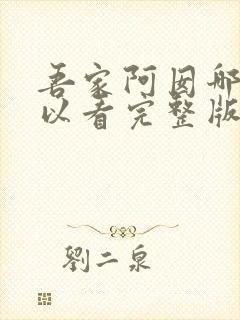 吾家阿囡哪
以看完整版
劉二泉